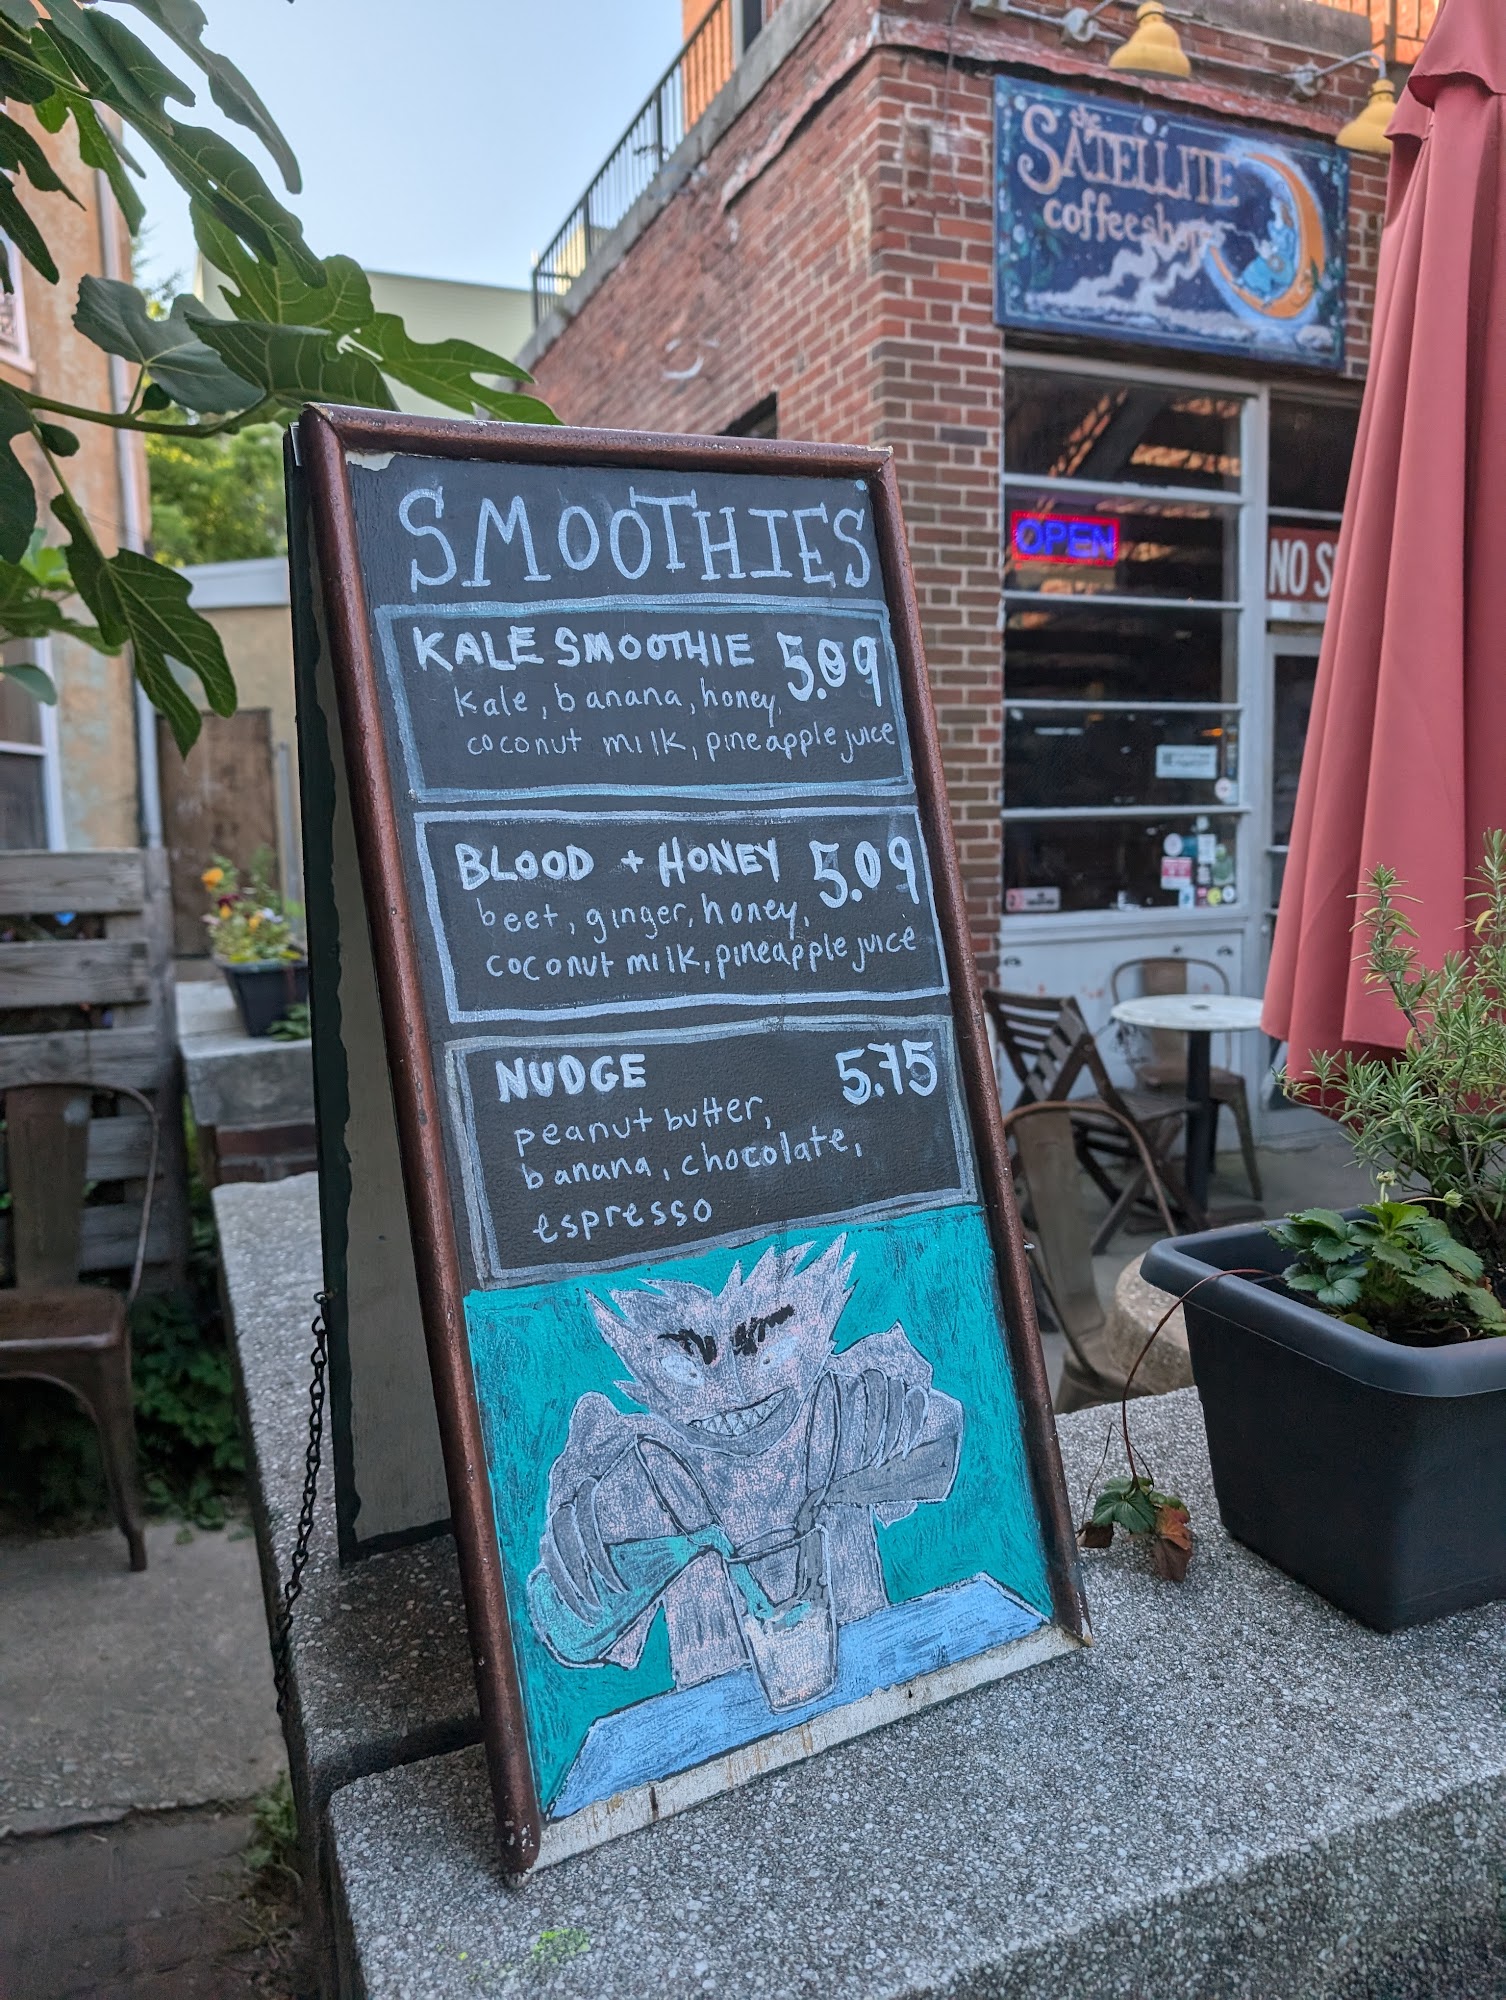 the
SATELLITE
coffeeshop
OPEN
NO
SMOOTHIES
KALE SMOOTHIE 5.09
kale, banana, honey,
coconut milk, pineapple juice
BLOOD + HONEY 5.09
beet, ginger, honey,
coconut milk, pineapple juice
NUDGE 5.75
peanut butter,
banana, chocolate,
espresso